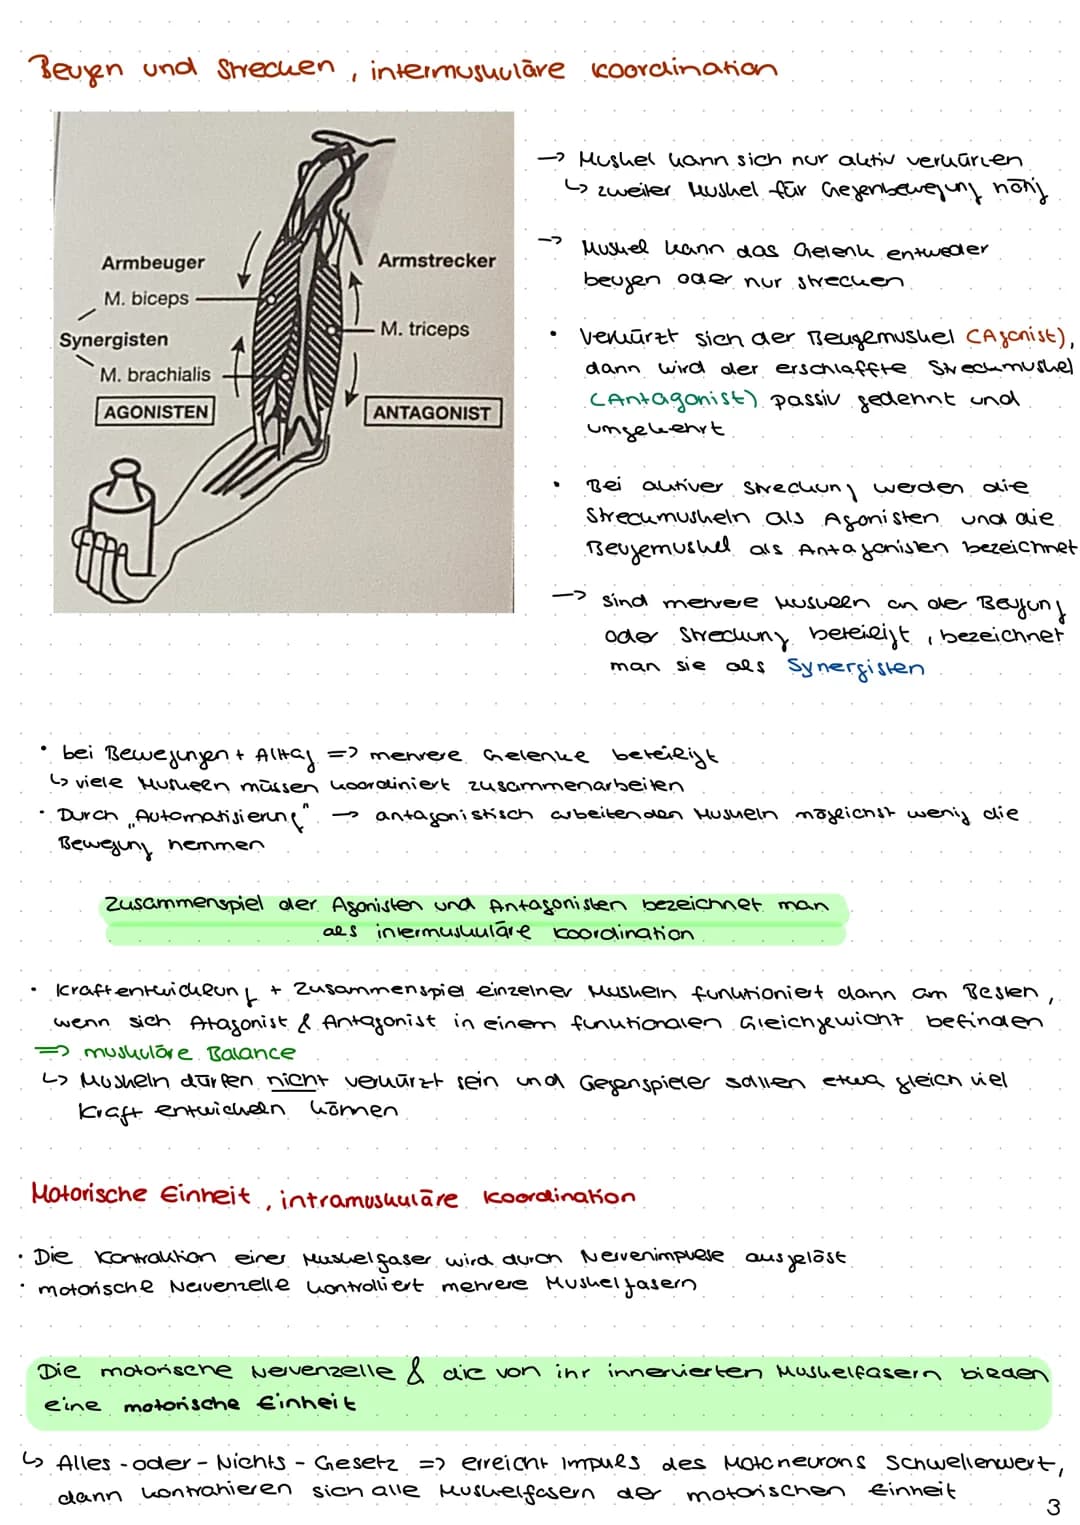 Beugen und Strecken, intermuskuläre Koordination
Armbeuger
M. biceps
Synergisten
M. brachialis
AGONISTEN
Armstrecker
M. triceps
ANTAGONIST
→ Muskel kann sich nur aktiv verkürzen
↳ zweiter Muskel für Gegenbewegung nötig
→ Muskel kann das Gelenk entweder
beugen oder nur strecken
• Verkürzt sich der Beugemuskel (Agonist),
dann wird der erschlaffte Streckmuskel
(Antagonist) passiv gedehnt und
umgekehrt
• Bei aktiver Streckung werden die
Streckmuskeln als Agonisten und die
Beugemuskel als Antagonisten bezeichnet
→ sind mehrere Muskeln an der Beugung
oder Streckung beteiligt, bezeichnet
man sie als Synergisten
• bei Bewegungen + Alltag => mehrere Gelenke beteiligt
↳ viele Muskeln müssen koordiniert zusammenarbeiten
• Durch „Automatisierung" → antagonistisch arbeitenden Muskeln möglichst wenig die
Bewegung hemmen
Zusammenspiel der Agonisten und Antagonisten bezeichnet man
als intermuskuläre Koordination
• Kraftentwicklung + Zusammenspiel einzelner Muskeln funktioniert dann am Besten,
wenn sich Atagonist & Antagonist in einem funktionalen Gleichgewicht befinden
=> muskuläre Balance
↳ Muskeln dürfen nicht verkürzt sein und Gegenspieler sollen etwa gleich viel
Kraft entwickeln können
Motorische Einheit, intramuskuläre Koordination
• Die Kontraktion einer Muskelfaser wird durch Nervenimpulse ausgelöst
• motorische Nervenzelle kontrolliert mehrere Muskelfasern
Die motorische Nervenzelle & die von ihr innervierten Muskelfasern bilden
eine motorische Einheit
↳ Alles-oder-Nichts-Gesetz => erreicht Impuls des Motoneurons Schwellenwert,
dann kontrahieren sich alle Muskelfasern der motorischen Einheit
3